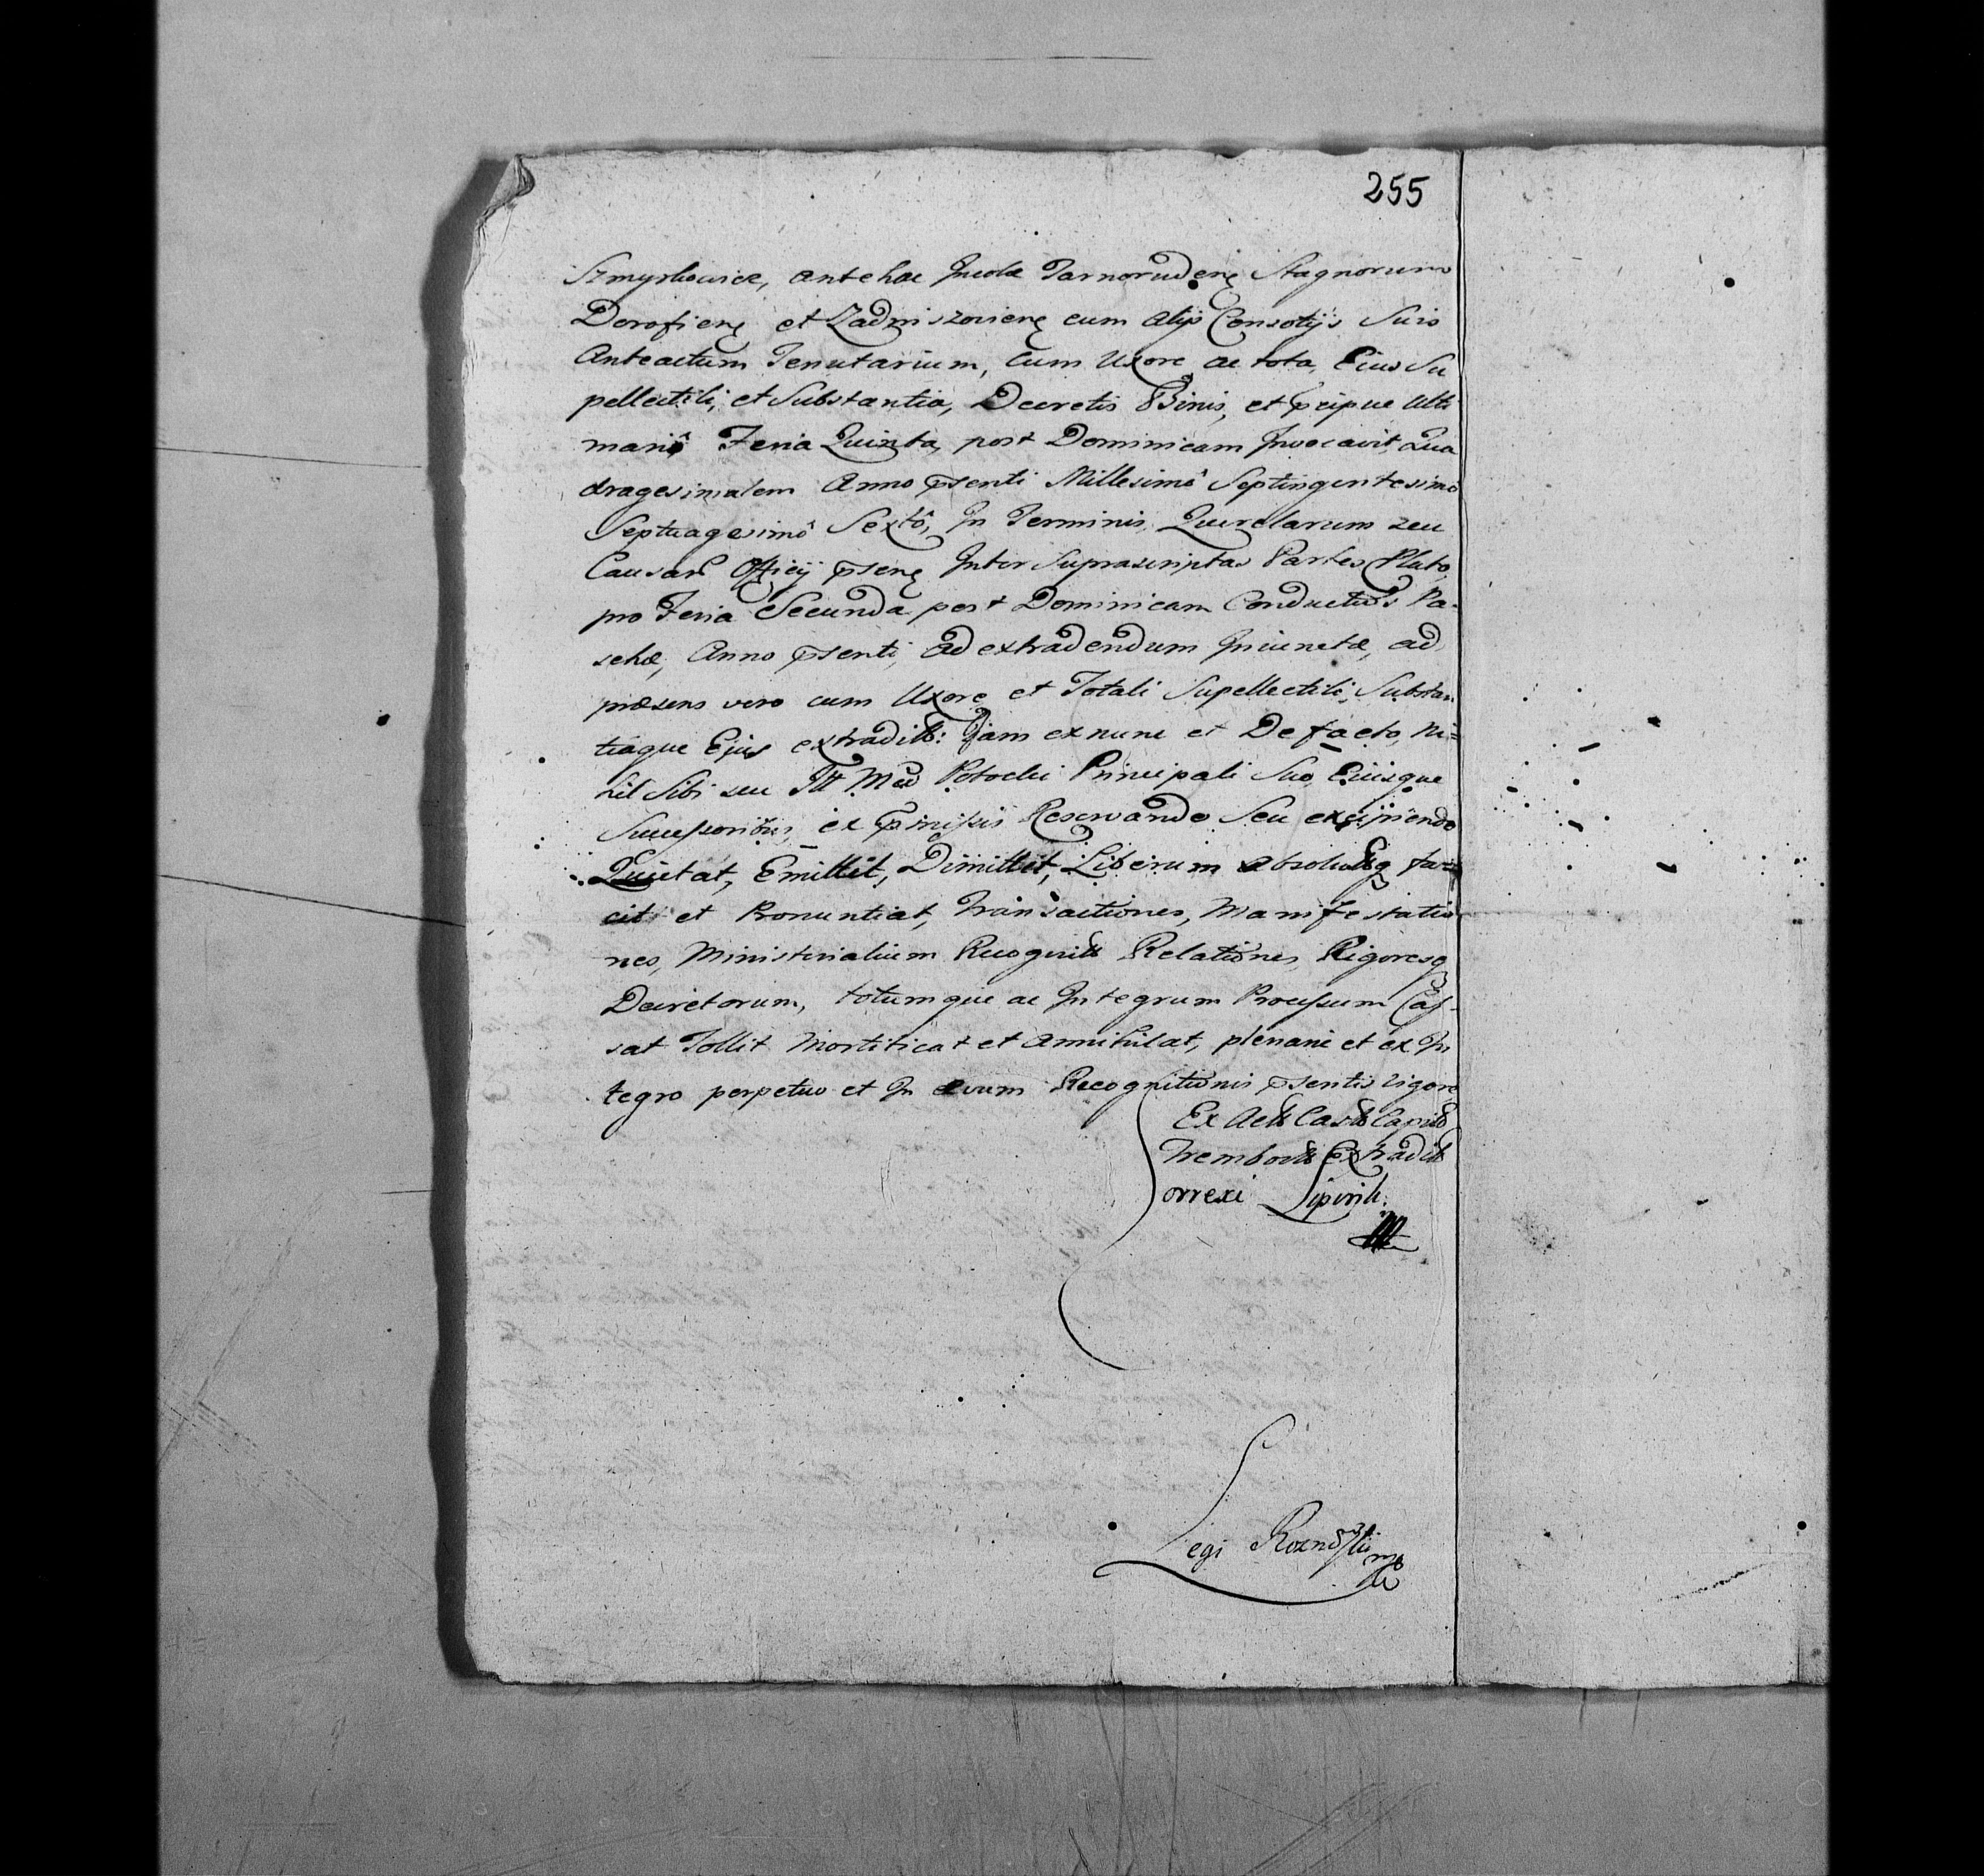 255
Szmyrkowicz, antehac Incolæ Tarnorudenę Stagnorum
Dorofienę et Zadniszovienę cum alijs Consotijs Suis
Anteactum Tenutarium, cum Uxore ac tota, Eius Su
pellectili, et Substantia, Decretis Binis, et p̄cipue Ulti
mario Feria Quinta, post Dominicam Invocavit, Qua
dragesimalem Anno p̄senti Millesimô Septingentesimô
Septuagesimô Sextô, In Terminis, Querelarum seu
Causar Officij p̄senę Inter Suprascriptas Partes
pro Feria Secunda post Dominicam Conductus Pa-
schæ, Anno p̄senti, ad extradendum Iniunctæ, ad
præsens vero cum Uxore et Totali Supellectili, Substan
tiaque Ejus extradit: Jam exnunc et De facto, ni=
hil Sibi seu Potocki Principali Suo, Eiusque
Successoribus, ex p̄missis Reservando Seu excipiendo
Quietat, Emittit, Dimittit, Liberum absolutq fa=
cit et Pronuntiat, Transactiones, Manifestatio
nes, Ministerialium Recognit Relationes, Rigoresq
Decretorum, totumque ac Integrum Processum Cas-
sat Tollit Mortificat et Annihilat, plenarie et ex In
tegro perpetuo et In ævum Recognitionis p̄sentis vigore
Ex Act Cast Capit
Trembow Extradit
orrexi Lipinsk:
Legi